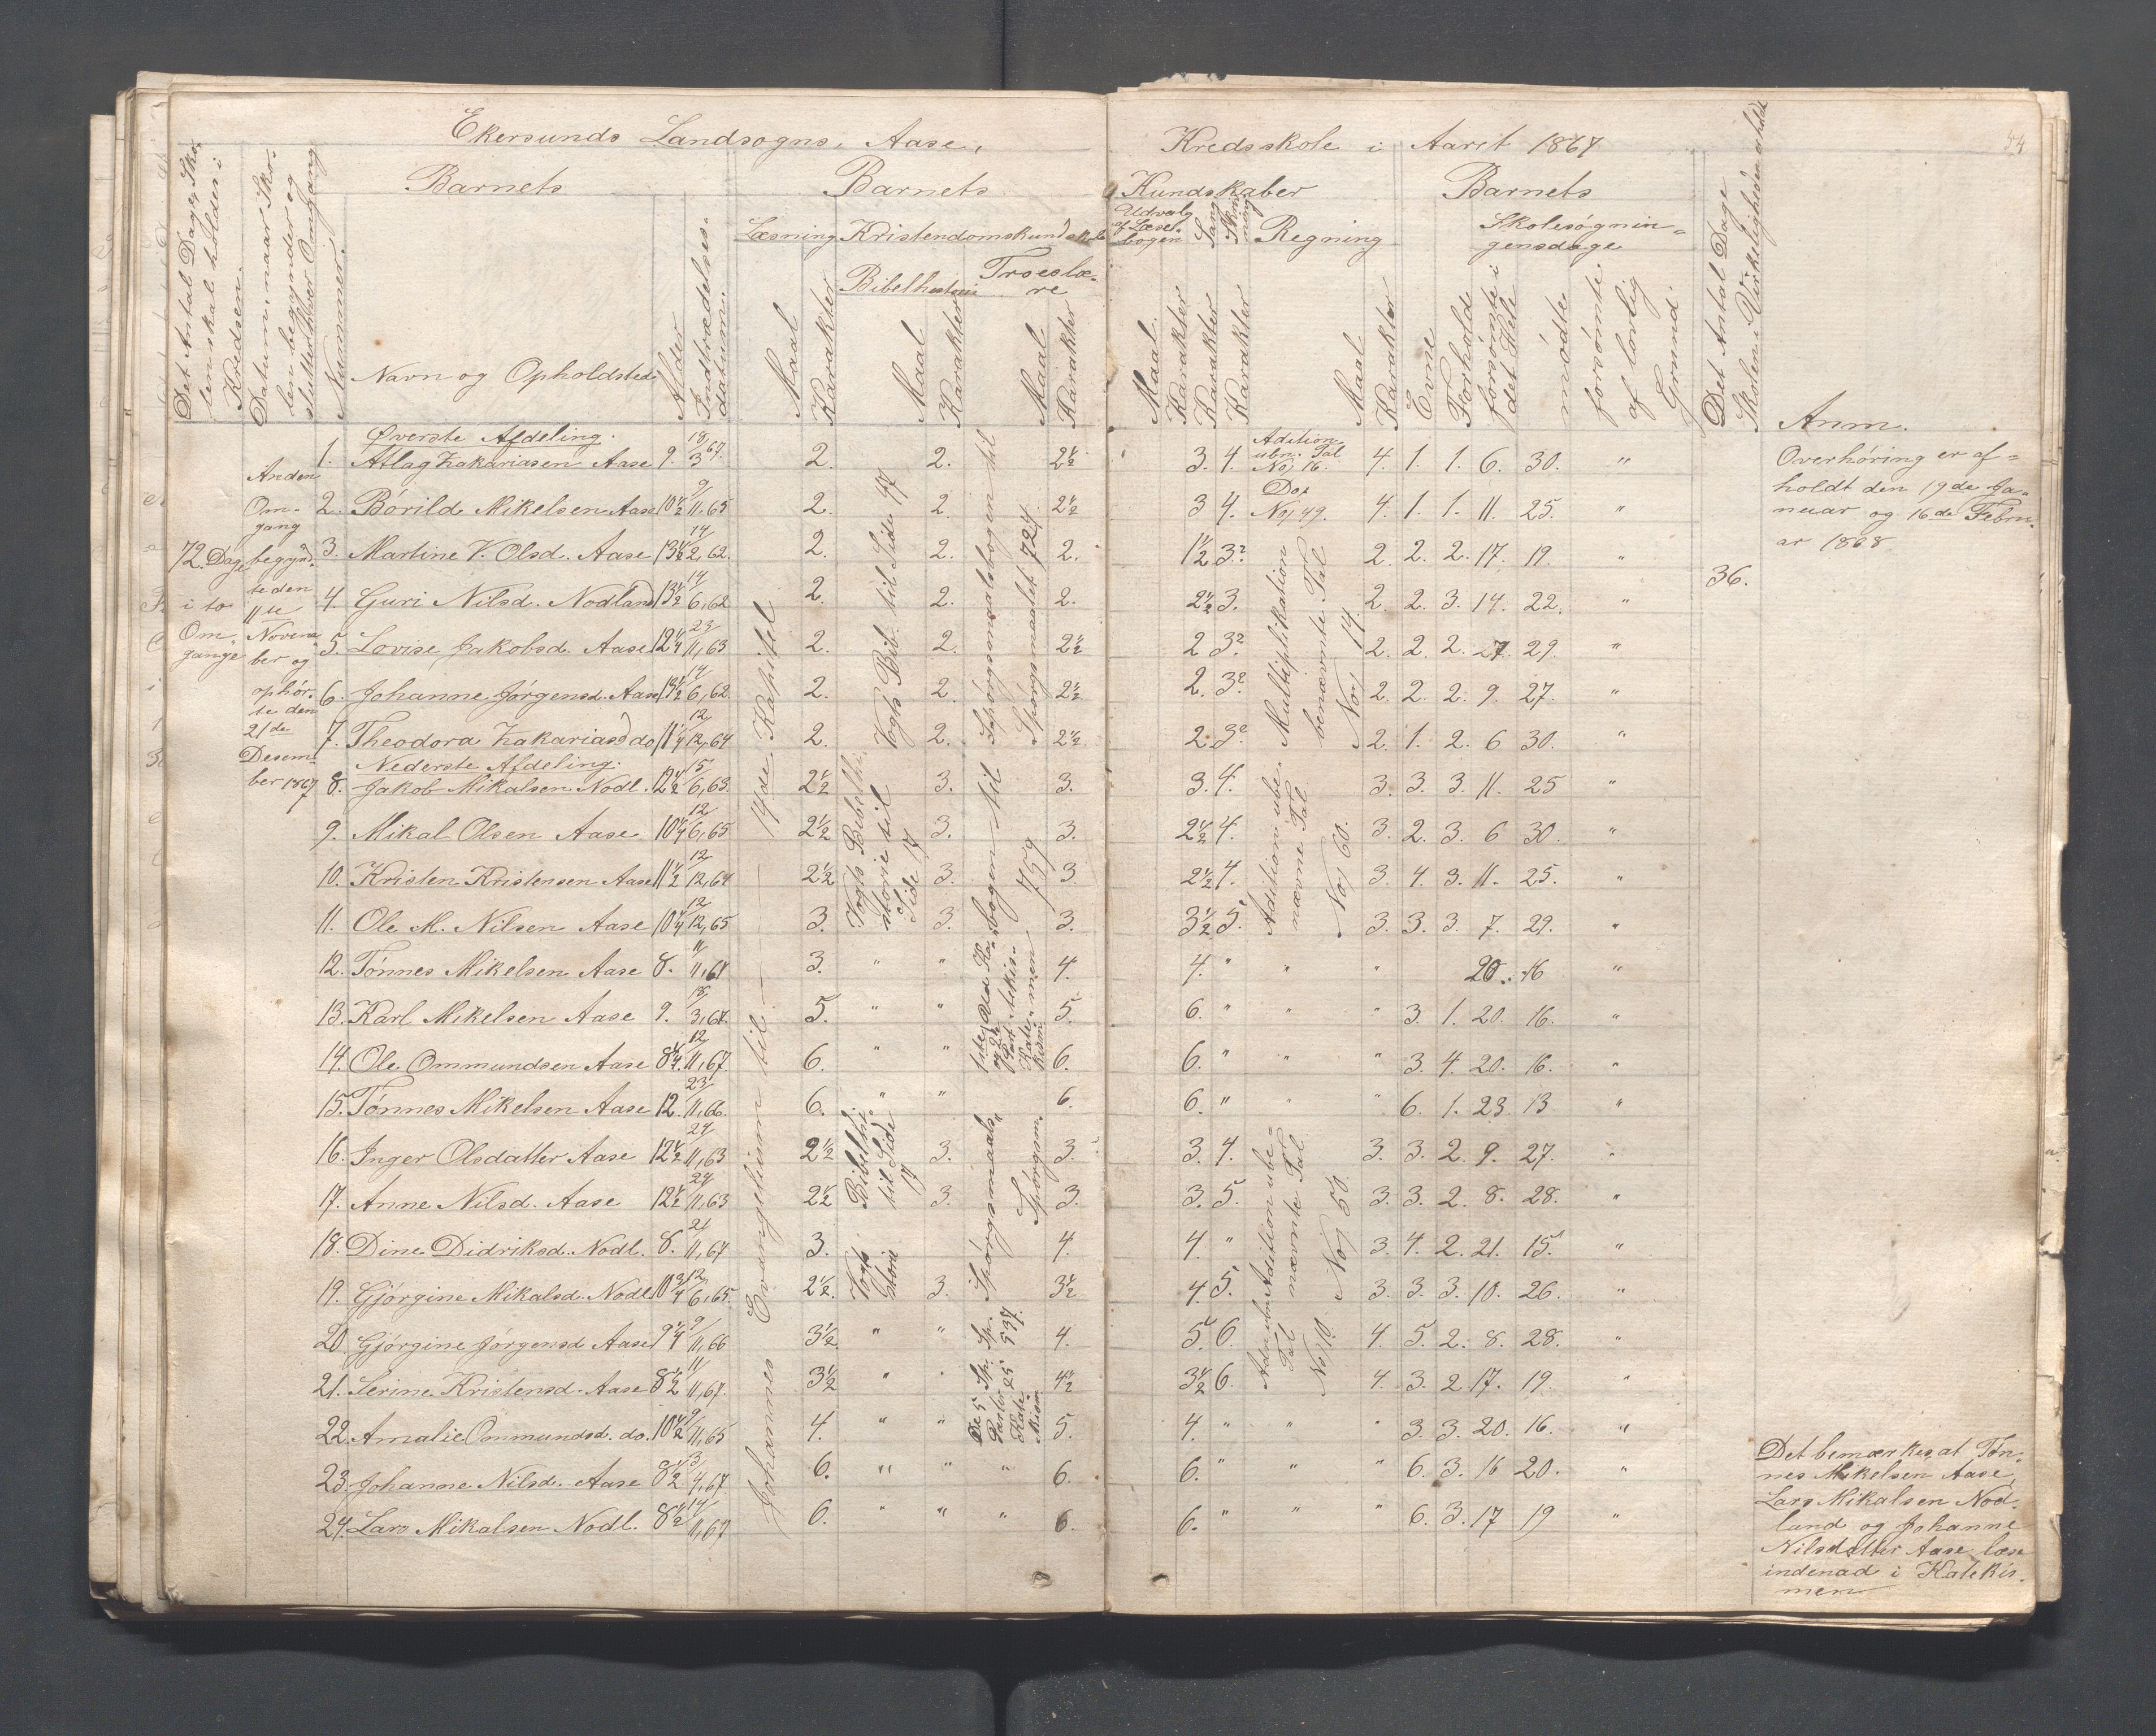 Ekersunds Landsogns, Aase, Kredsskole i Aaret 1867
44
Det Antal Dage, Skolen skal holdes i Kredsen.
Datum, naar Skolen begynder og slutter hver Omgang
Nummer.
Barnets
Navn og Opholdsted
Alder
Indtrædelsesdatum.
Barnets Kundskaber
Læsning
Maal
Karakter
Kristendomskundskab
Bibelhistorie
Maal
Karakter
Troeslære
Maal
Karakter
Udvalg af Læsebogen
Maal.
Karakter
Sang
Karakter
Skrivning
Karakter
Regning
Maal
Karakter
Barnets
Evne
Forholde
Skolesøgningensdage
forsømte i det Hele
mødte
forsømte af lovlig Grund.
Det Antal Dage Skolen i Virkeligheden er holdt
Anm.
72. Dage
i to
Omgange
Anden
Omgang
begyndte den
11te
November og
ophørte den
21de
Desember 1867
Øverste Afdeling.
1. Atlag Zakariasen Aase 9. 18/3 67. 2. 2. 2½ 3. 4. Adition ubn. Tal No 16. 4. 1. 1. 6. 30. "
2. Børild Mikelsen Aase 10½ 9/11,65 2. 2. 2½ 3 4. Do No 49. 4. 1. 1. 11. 25. "
3. Martine V. Olsd. Aase 13½ 14/2,62. 2. 2. 2. 1½ 3? 2. 2. 2. 17. 19. "
4. Guri Nilsd. Nodland 13½ 14/6,62 2. 2. 2. 2½ 3. 2. 2. 3. 14. 22. "
5. Lovise Jakobsd. Aase 12¼ 23/11,63 2. 2. 2½ 2 3? 2. 2. 2. 27. 29. "
6. Johanne Jørgensd. Aase 13½ 14/6,62. 2. 2. 2½ 2. 3? 2. 2. 2. 9. 27. "
7. Theodora Zakariasd do 11¼ 12/12,64 2. 2. 2½ 2. 3? 2. 1. 2. 6 30. "
Nederste Afdeling.
8. Jakob Mikalsen Nodl. 12½ 15/6,63. 2½ 3. 3. 3. 4. 3. 3. 3. 11. 25 "
9. Mikal Olsen Aase 10¼ 12/6,65 2½ 3. 3. 2½ 4. 3. 2. 3. 6 30. "
10. Kristen Kristensen Aase 11½ 12/12,64 2½ 3. 3. 2½ 4. 3. 4. 3. 11. 25. "
11. Ole M. Nilsen Aase 10¼ 12/12,65 3. 3. 3. 3½ 5. 3. 3. 3. 7. 29. "
12. Tønnes Mikelsen Aase 8. 11/11,67 3. " " 4. 4. " " " 20. 16 "
13. Karl Mikelsen Aase 9. 18/3,67. 5. " " 5. 6. " " 3. 1. 20. 16. "
14. Ole Ommundsen Aase 8¼. 12/11,67. 6. " " 6. 6. " " " 3. 4. 20. 16. "
15. Tønnes Mikelsen Aase 12. 23/11,66. 6. " " 6. 6. " " " 6. 1. 23. 13 "
16. Inger Olsdatter Aase 12½ 24/11,63 2½ 3. 3. 3. 4. 3. 3. 2. 9. 27. "
17. Anne Nilsd. Aase 12½ 24/11,63 2½ 3. 3. 3. 5. 3. 3. 2. 8. 28. "
18. Dine Didriksd. Nodl. 8. 21/11,67 3. 4. 4. " 3. 4. 2. 21. 15. "
19. Gjørgine Mikalsd. Nodl 10¾ 12/6,65. 2½. 3. 3½ 4. 5. 3. 3. 3. 10. 26. "
20. Gjørgine Jørgensd Aase 9¼ 9/11,66 3½ " " 4. 5. 6 4. 5. 2. 8. 28. "
21. Serine Kristensd. Aase 8½ 11/11,67. 3½ " " 4½ 3½ 6. 4. 3. 2 17. 19. "
22. Amalie Ommundsd. do. 10½ 9/11,65 4. " " 5. 4. " " " 3. 3. 20. 16. "
23. Johanne Nilsd. Aase 8½ 3/4,67 6. " " " 6. 6. " " " 6. 3. 16 20. "
24. Lars Mikalsen Nodl. 8½ 14/11,67 6. " " " 6. 6. " " " 6. 3. 17 19 "
Johannes Evangelium til 14de Kapitel
Vogts Bib. til Side 97
Vogts Bibelhistorie til Side 17
Vogts Bibelhistorie til Side 17
Spørgsmaalsbogen til Spørgsmaalet 724.
Spørgsmaalsbogen til Spørgsm. 759
1ste og 2de Part Katekism
De 5 Parter Katekism
Sp. 537.
Multiplikation benævnte Tal No 14.
Adition ubenævne Tal No 60.
Adition ubenævnte Tal No 50.
Adn ubn Tal No 10.
36.
Overhøring er afholdt
den 19de Januar
og 16de Februar
1868
Det bemærkes, at Tønnes
Mikelsen Aase,
Lars Mikalsen Nodland
og Johanne
Nilsdatter Aase læse
indenad i Katekismen